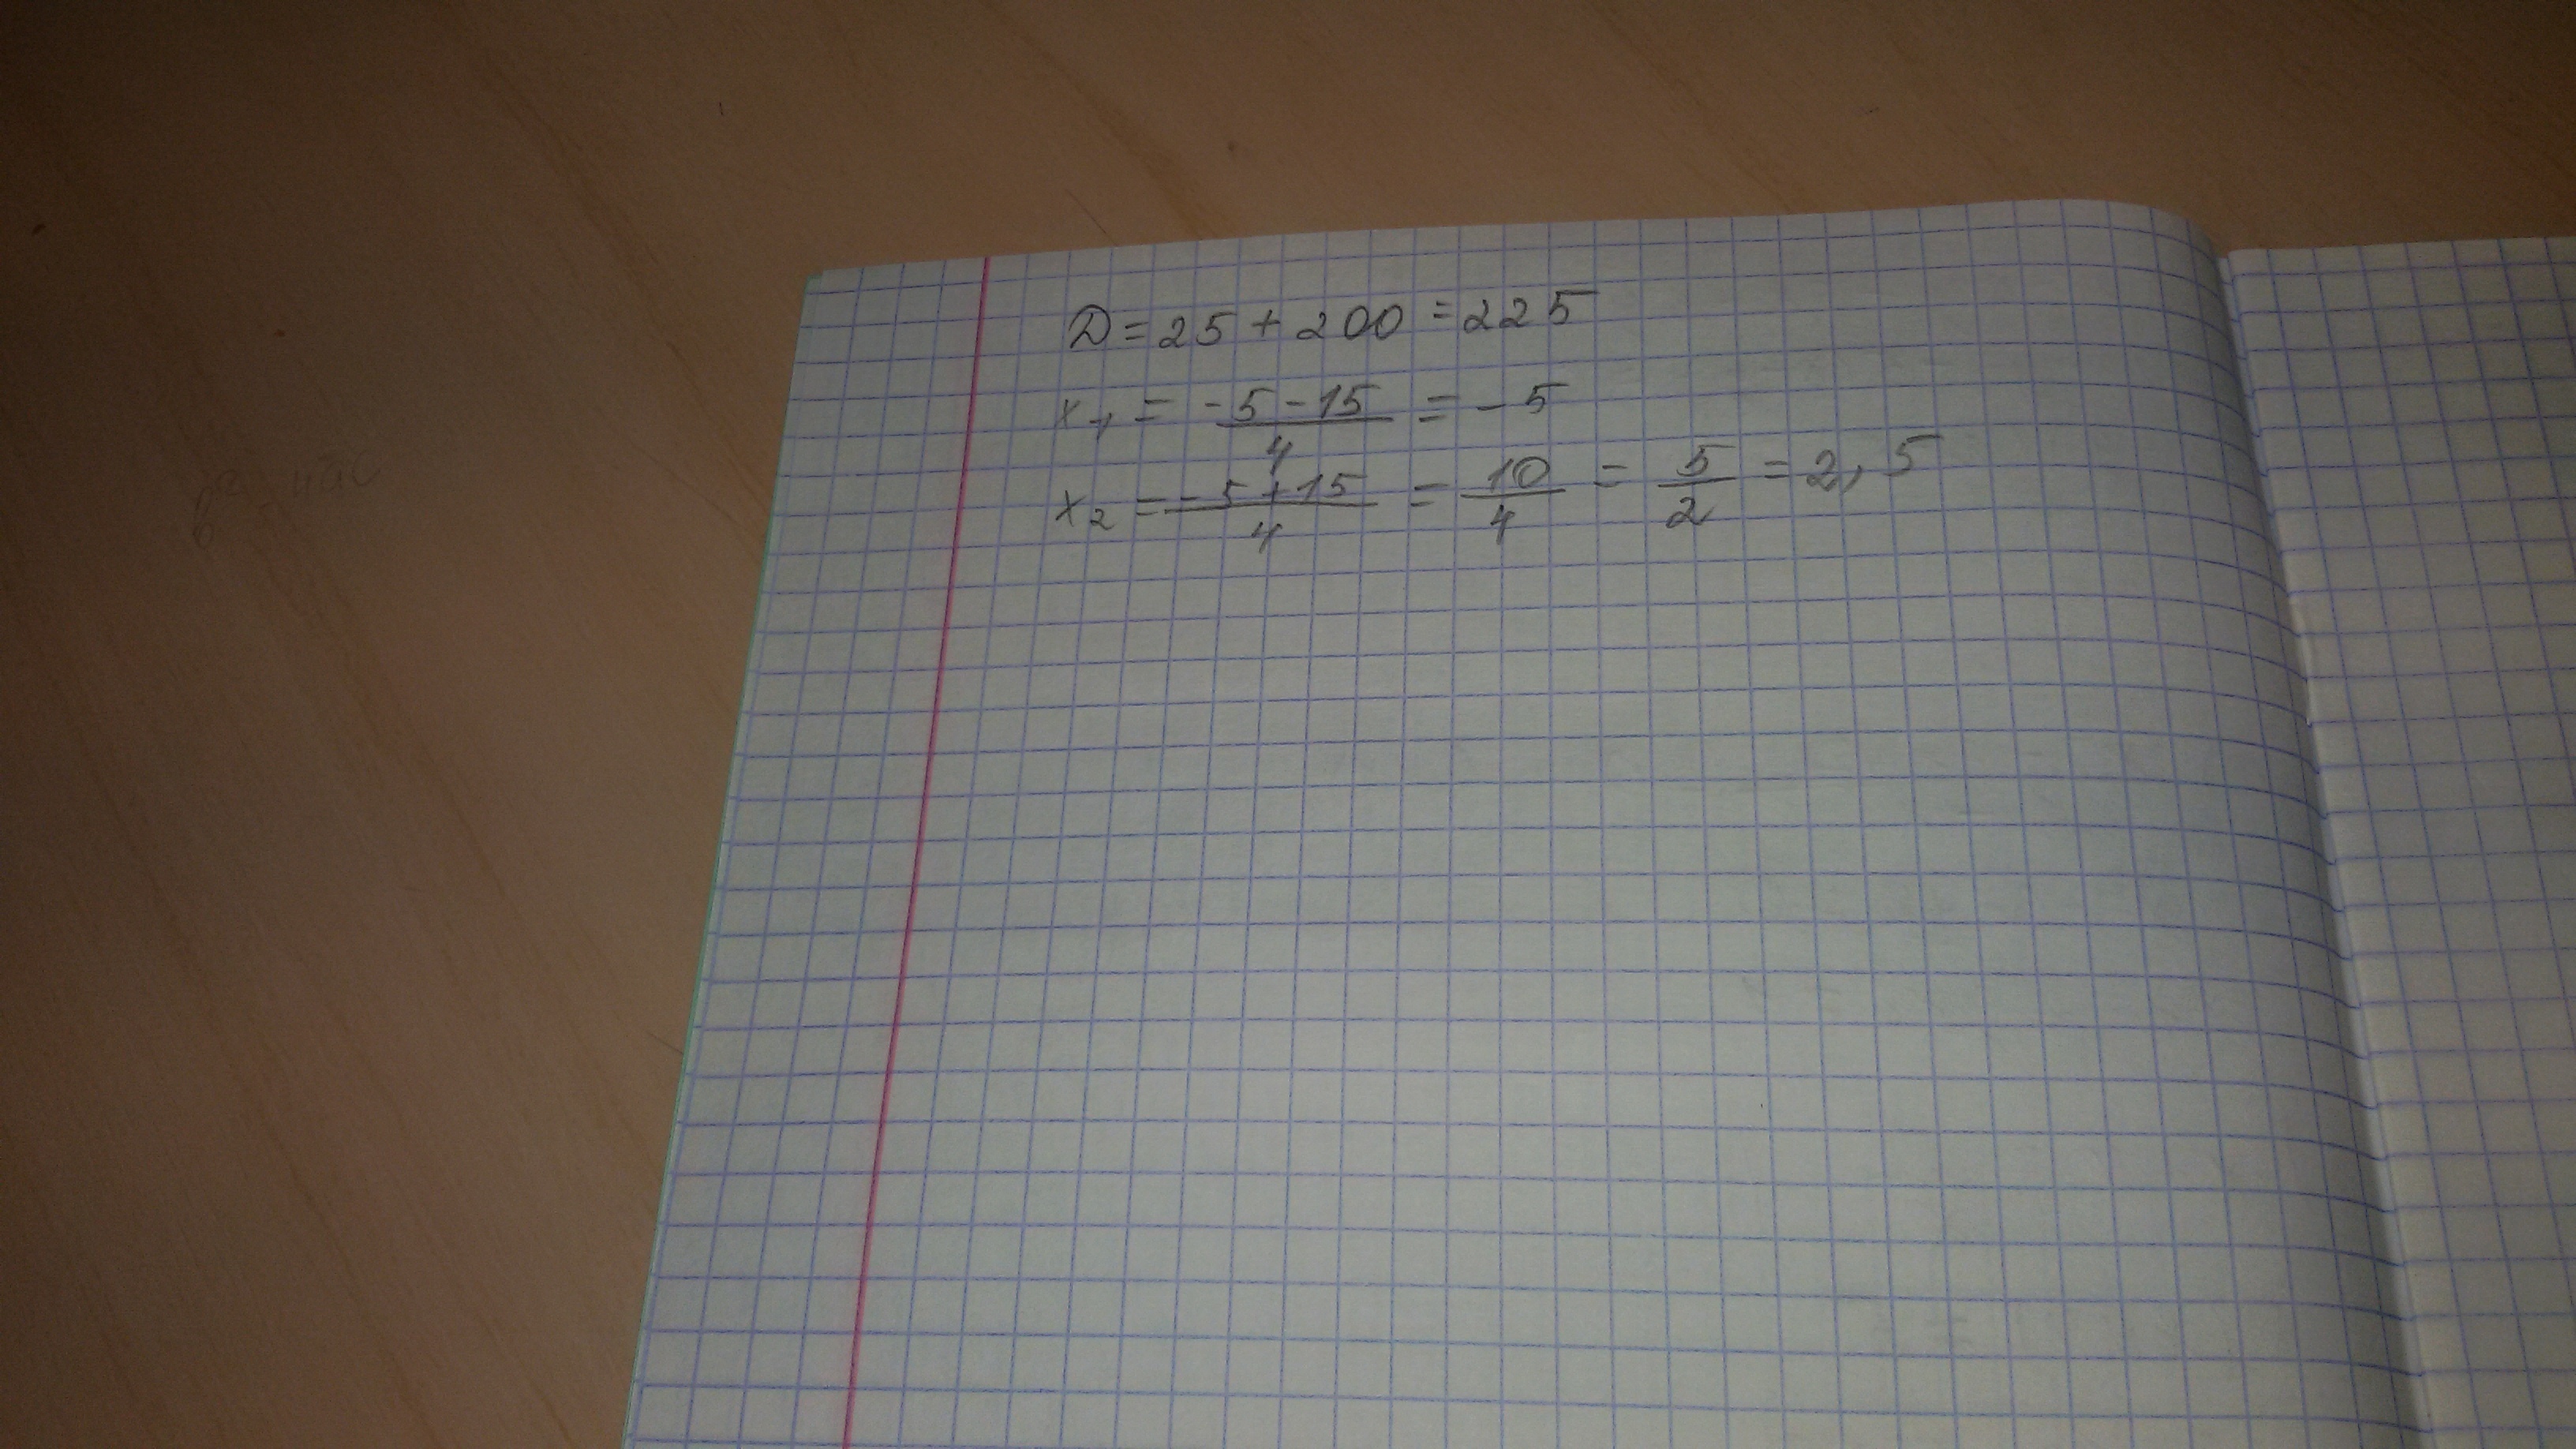 D = 25 + 200 = 225
x₁ = (-5 - 15)/4 = -5
x₂ = (-5 + 15)/4 = 10/4 = 5/2 = 2,5